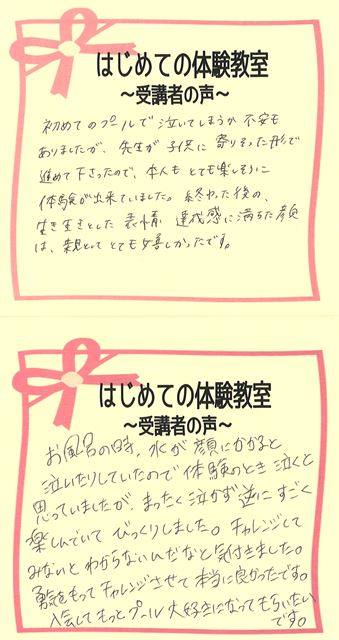 はじめての体験教室
～受講者の声～
初めてのプールで泣いてしまうか不安も
ありましたが、先生が子供に寄りそった形で
進めて下さったので、本人もとても楽しそうに
体験が出来ていました。終わった後の、
生き生きとした表情、達成感に満ちた顔
は、親としてとても嬉しかったです。
はじめての体験教室
～受講者の声～
お風呂の時、水が顔にかかると
泣いたりしていたので体験のとき泣くと
思っていましたが、まったく泣かず逆にすごく
楽しんでいてびっくりしました。チャレンジして
みないとわからないんだなと気付きました。
勇気をもってチャレンジさせて本当に良かったです。
入会してもっとプール大好きになってもらいたい
です。